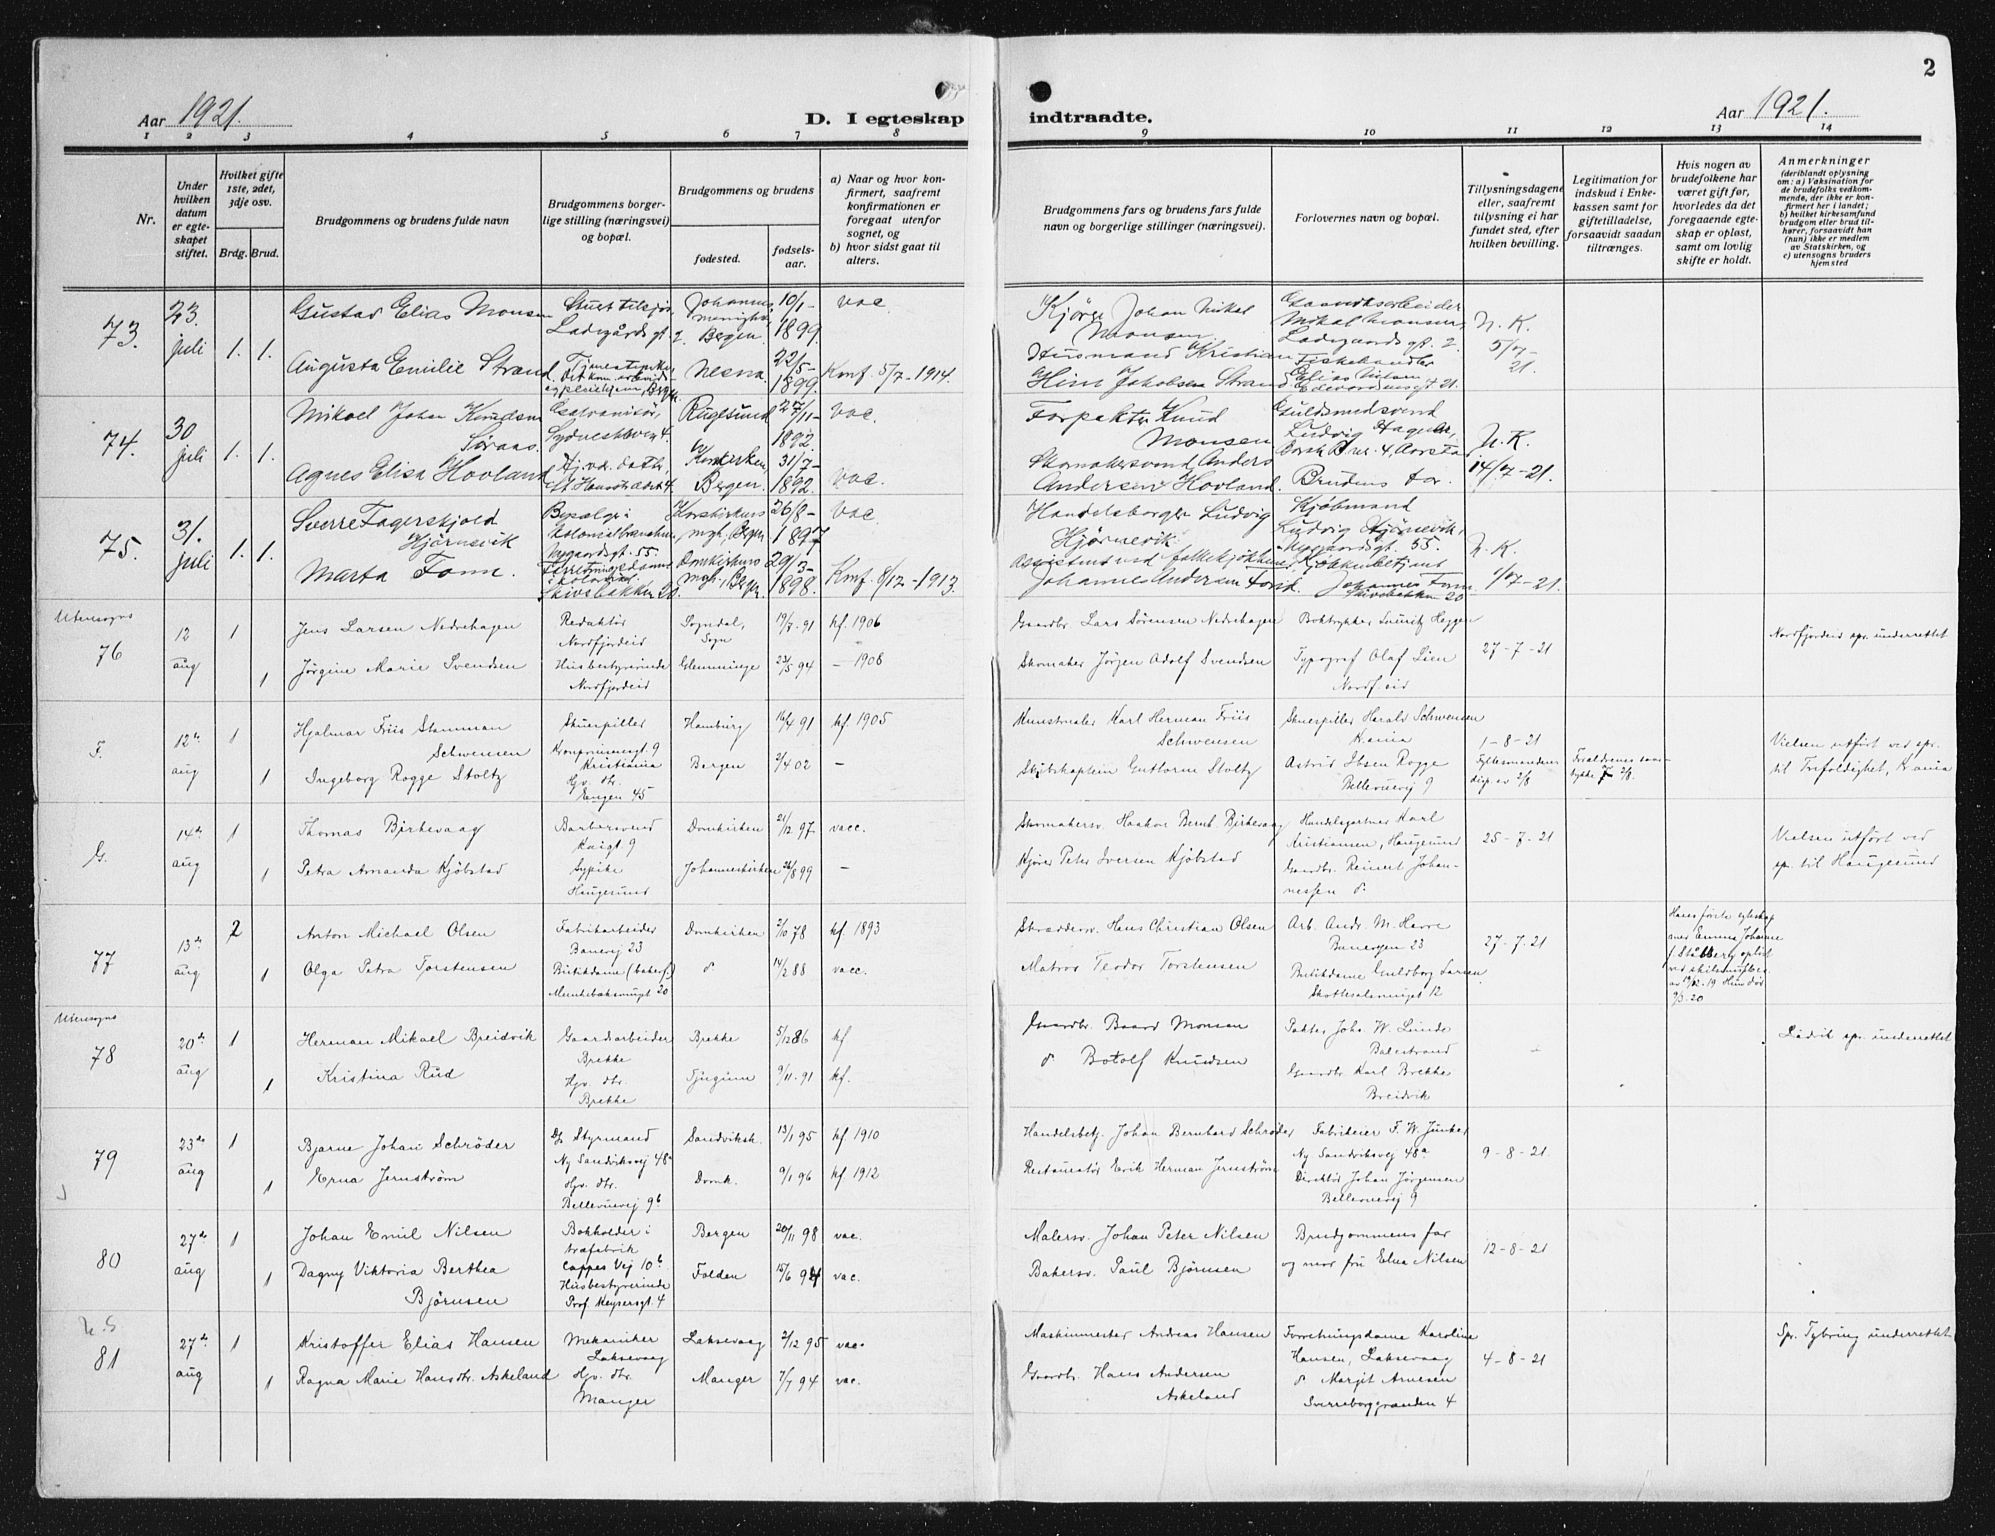 2
Aar 1921.
D. I egteskap
indtraadte.
Aar 1921.
1 2 3 4 5 6 7 8
9 10 11 12 13 14
Nr.
Under hvilken datum er egteskapet stiftet.
Hvilket gifte 1ste, 2det, 3dje osv.
Brdg. Brud.
Brudgommens og brudens fulde navn
Brudgommens borgerlige stilling (næringsvei) og bopæl.
Brudgommens og brudens
fødested.
fødselsaar.
a) Naar og hvor konfirmert, saafremt konfirmationen er foregaat utenfor sognet, og
b) hvor sidst gaat til alters.
Brudgommens fars og brudens fars fulde navn og borgerlige stillinger (næringsvei).
Forlovernes navn og bopæl.
Tillysningsdagene eller, saafremt tillysning ei har fundet sted, efter hvilken bevilling.
Legitimation for indskud i Enkekassen samt for giftetilladelse, forsaavidt saadan tiltrænges.
Hvis nogen av brudefolkene har været gift før, hvorledes da det foregaaende egteskap er opløst, samt om lovlig skifte er holdt.
Anmerkninger
(deriblandt oplysning om: a) Vaksination for de brudefolks vedkommende, der ikke er konfirmert her i landet;
b) hvilket kirkesamfund brudgom eller brud tilhører, forsaavidt han (hun) ikke er medlem av Statskirken, og
c) utensogns bruders hjemsted
73. 23. juli 1. 1.
Gustav Elias Monsen
Ladegårdsgt. 2
Johannes menighet, Bergen.
10/1-1899.
vac
Kjørge Johan Mikal Monsen
Mikal Monsen, Ladegaardsgt. 2.
N. K.
5/7-21.
Augusta Emilie Strand
Nesna.
22/5-1899.
Konf. 5/7-1914.
Husmand Kristian Strand
Fiskehandler Elias Nilsen
74. 30 juli 1. 1.
Mikael Johan Knudsen Søraas.
Rugsund
27/11-1892.
vac.
Forpakter Knud Monsen
Guldsmedsvend Ludvig Hagder,
N. K.
14/7-21.
Agnes Elisa Hovland
Korskirken, Bergen.
31/7-1892.
vac.
Skomakersvend Anders Andersen Hovland.
Brudens far.
75. 31. juli 1. 1.
Sverre Fagerskjold Hjørnevik
Nygaardsgt. 55.
Korskirkens mgh, Bergen
26/8-1897
vac.
Handelsborger Ludvig Hjørnevik.
Kjøbmand Ludvig Hjørnevik, Nygaardsgt. 55.
N. K.
1/7-21.
Marta Fonn.
Skivebakken 20.
Domkirkens mgh, Bergen
29/3-1898.
Konf. 8/12-1913.
Johannes Andersen
Johannes Fonn Skivebakken 20
Utensogns
76 12 aug 1
Jens Larsen Nedrehagen
Redaktør Nordfjordeid
Sogndal, Sogn
19/7-91
kf. 1906
Gaardbr. Lars Sørensen Nedrehagen
Boktrykker Lauritz Heggen
27-7-21
Nordfjordeid spr. underrettet
1
Jørgine Marie Svendsen
Husbestyrerinde Nordfjordeid
Glemminge
23/5 94
- 1908
Skomaker Jørgen Adolf Svendsen
Typograf Olaf Lien Nordf.eid
F. 12te aug 1
Hjalmar Friis Stamman Schwensen
Skuespiller Kronprinsensgt. 9 Kristiania
Hamburg
16/4 91
kf. 1905
Kunstmaler Karl Herman Friis Schwensen
Skuespiller Harald Schwensen Krania
1-8-21
Fylkesmandens disp. av 2/8
Vielsen utført ved spr. til Trefoldighet, Krania
1
Ingeborg Rogge Stoltz
Hjv. dtr. Engen 45
Bergen
2/4 02
-
Skibskaptein Guttorm Stoltz
Astrid Ibsen Rogge Bellevuevej 9
G. 14de aug 1
Thomas Birkevaag
Barbersvend Kaigt 9
Domkirken
21/12 97
vacc.
Skomakersv. Haakon Bernt Birkevaag
Handelsgartner Karl Kristiansen, Haugesund
25-7-21
Vielsen utført ved spr. til Haugesund
1
Petra Amanda Kjøbstad
Sypike Haugesund
Johanneskirken
26/8 99
-
Kjører Peter Iversen Kjøbstad
Gaardbr. Reinert Johannessen do
77 13de aug 2
Anton Michael Olsen
Fabrikarbeider Banevej 23
Domkirken
2/10 78
kf. 1893
Skræddersv. Hans Christian Olsen
Arb. Andr. M. Havre Banevejen 23
27-7-21
Hans første egteskap med Emma Johanne
1
Olga Petra Torstensen
Butikdame (baker f.) Munkebæksmugt 20
do
14/2 88
vacc.
Matros Teodor Torstensen
Butikdame Guldborg Larsen 12
Utensogns
78 20de aug 1
Herman Mikael Breidvik
Gaardsarbeider Brekke
Brekke
5/12 86
kf
Gaardbr. Baard Monsen
Pakter Johs. W. Lunde Balestrand
Ladvik spr. underrettet
1
Kristina Rud
Hjv. dtr. Brekke
Tjugum
9/11-91
kf.
do Botolf Knudsen
Gaardbr. Karl Brekke Breidvik
79 23de aug 1
Bjarne Johan Schrøder
Styrmand Ny Sandviksvej 48a
Sandviksk.
13/1 95
kf 1910
Handelsbetj. Johan Bernhard Schrøder
Fabrikeier F. W. Junker Ny Sandviksvej 48a
9-8-21
1
Erna Jernstrøm
Hjv. dtr. Bellevuevej 9b
Domk.
9/1 96
kf 1912
Restauratør Erik Herman Jernstrøm
Direktør Johan Jørgensen Bellevuevej 9
80 27de aug 1
Johan Emil Nilsen
Bokholder i træfabrik Cappes Vej 10b
Bergen
20/11 98
vac.
Malersv. Johan Peter Nilsen
Brudgommens far
12-8-21
1
Dagny Viktoria Berthea Bjørnsen
Husbestyrerinde Prof. Keysersgt. 4
Folden
15/6 94
vac.
Bakersv. Paul Bjørnsen
og mor fru Elna Nilsen
81 27de aug 1
Kristoffer Elias Hansen
Mekaniker Laksevaag
Laksevaag
2/12 95
vac.
Maskinmester Andreas Hansen
Forretningsdame Karoline Hansen, Laksevaag
4-8-21
Spr. Tybring underrettet
1
Ragna Marie Hansdtr. Askeland
Hjv. dtr. Manger
Manger
7/7 94
vac.
Gaardbr. Hans Andersen Askeland
do Margit Arnesen Sverreborggranden 4